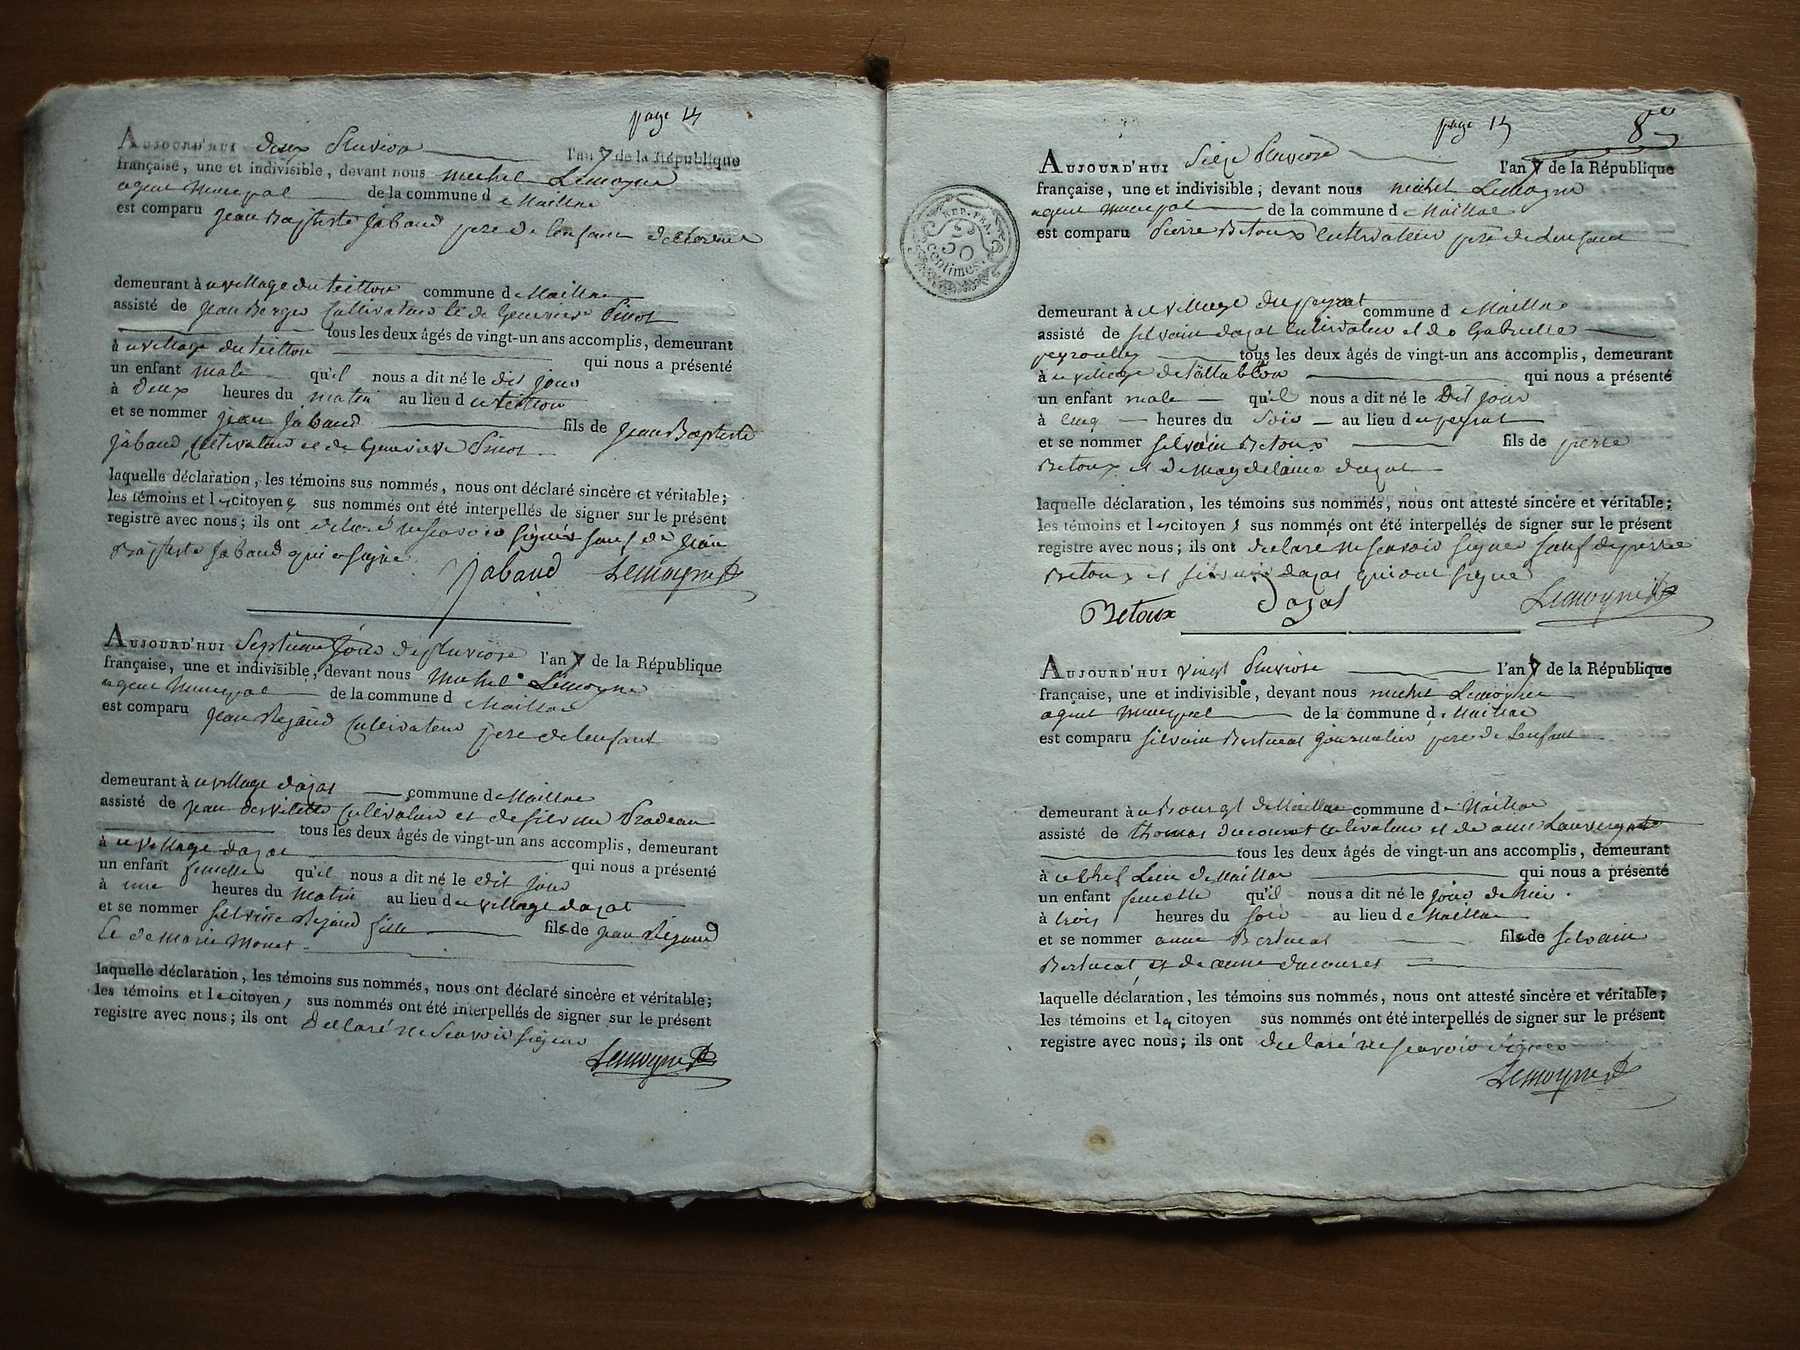 page 14
AUJOURD'HUI deux Pluviose l'an 7 de la République
française, une et indivisible, devant nous michel Lemoyne
agent municipal de la commune de Maillac
est comparu jean Baptiste jabaud pere de lenfant
demeurant à u village du teillou commune de Maillac
assisté de jean Berger Cultivateur et de Genevieve Pinot
tous les deux âgés de vingt-un ans accomplis, demeurant
à u village du teillou qui nous a présenté
un enfant male qu'il nous a dit né le dit jour
à deux heures du matin au lieu du teillou
et se nommer jean jabaud fils de jean Baptiste
jabaud, Cultivateur et de Genevieve Pinot
laquelle déclaration, les témoins sus nommés, nous ont déclaré sincère et véritable;
les témoins et les citoyens sus nommés ont été interpellés de signer sur le présent
registre avec nous; ils ont declaré ne savoir signer sauf de jean
Baptiste jabaud qui a signé
jabaud Lemoyne
AUJOURD'HUI Septieme jour de pluviose l'an 7 de la République
française, une et indivisible, devant nous Michel Lemoyne
agent municipal de la commune de Maillac
est comparu jean Rejaud Cultivateur pere de lenfant
demeurant à u village dajat commune de Maillac
assisté de jean Cultivateur et de silvine Pradeau
tous les deux âgés de vingt-un ans accomplis, demeurant
à u village dajat qui nous a présenté
un enfant femelle qu'il nous a dit né le edit jour
à une heures du matin au lieu de village dajat
et se nommer silvine Rejaud fille fils de jean Rejaud
Et de marie Monet
laquelle déclaration, les témoins sus nommés, nous ont déclaré sincère et véritable;
les témoins et le citoyen, sus nommés ont été interpellés de signer sur le présent
registre avec nous; ils ont declaré ne scavoir signer
Lemoyne
page 15
8e
REP. FRA.
50
centimes.
AUJOURD'HUI Seize Pluviose l'an 7 de la République
française, une et indivisible; devant nous michel Lemoyne
agent municipal de la commune de Maillac
est comparu Pierre Betoux Cultivateur pere de Lenfant
demeurant à u village du peyrat commune de Maillac
assisté de silvain dajat Cultivateur et de Gabrielle
peyrouille tous les deux âgés de vingt-un ans accomplis, demeurant
à u village de qui nous a présenté
un enfant male qu'il nous a dit né le Dit jour
à cinq heures du Soir au lieu du peyrat
et se nommer silvain Betoux fils de pierre
Betoux et de Magdelaine dajat
laquelle déclaration, les témoins sus nommés, nous ont attesté sincère et véritable;
les témoins et les citoyens sus nommés ont été interpellés de signer sur le présent
registre avec nous; ils ont declaré ne scavoir signer sauf de pierre
Betoux et silvain dajat qui ont signé
Betoux Dajat Lemoyne
AUJOURD'HUI vingt Pluviose l'an 7 de la République
française, une et indivisible, devant nous michel Lemoyne
agent municipal de la commune de Maillac
est comparu silvain Bertucat journalier pere de Lenfant
demeurant à u Bourgt de Maillac commune de Maillac
assisté de thomas ducouret Cultivateur et de anne Lauvergnat
tous les deux âgés de vingt-un ans accomplis, demeurant
à u chef Lieu de Maillac qui nous a présenté
un enfant femelle qu'il nous a dit né le jour de hier
à trois heures du soir au lieu de Maillac
et se nommer anne Bertucat fils de silvain
Bertucat, et de anne ducouret
laquelle déclaration, les témoins sus nommés, nous ont attesté sincère et véritable;
les témoins et le citoyen sus nommés ont été interpellés de signer sur le présent
registre avec nous; ils ont declaré ne scavoir signer
Lemoyne